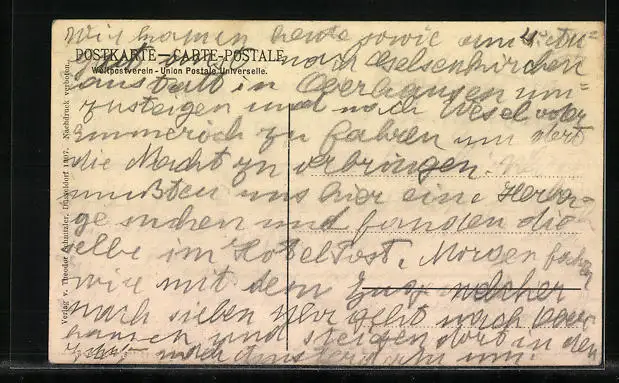 Wir kamen heute sowie um 4
POSTKARTE — CARTE-POSTALE
nach Gelsenkirchen
Weltpostverein - Union Postale Universelle.
anstatt in Oberhausen um=
zusteigen und nach Wesel oder
Emmerich zu fahren um dort
die Nacht zu verbringen.
mußten uns hier eine Herber=
ge suchen und fanden die
selbe im Hotel Post. Morgen fahren
wir mit dem Zug welcher
nach sieben Uhr geht nach Ober
hausen und steigen dort in den
Zug nach Amsterdam um.
Verlag v. Theodor Düsseldorf 1907. Nachdruck verboten.